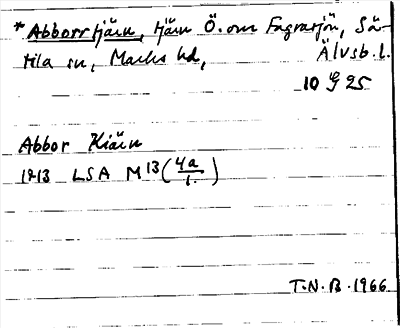 * Abborrtjärn, tjärn Ö. om Fagrasjön, Sä-
tila sn, Marks hd, Älvsb. l.
10 g 25
Abbor Kiärn
1713 LSA M 13 (4a/1.)
T.N.B. 1966